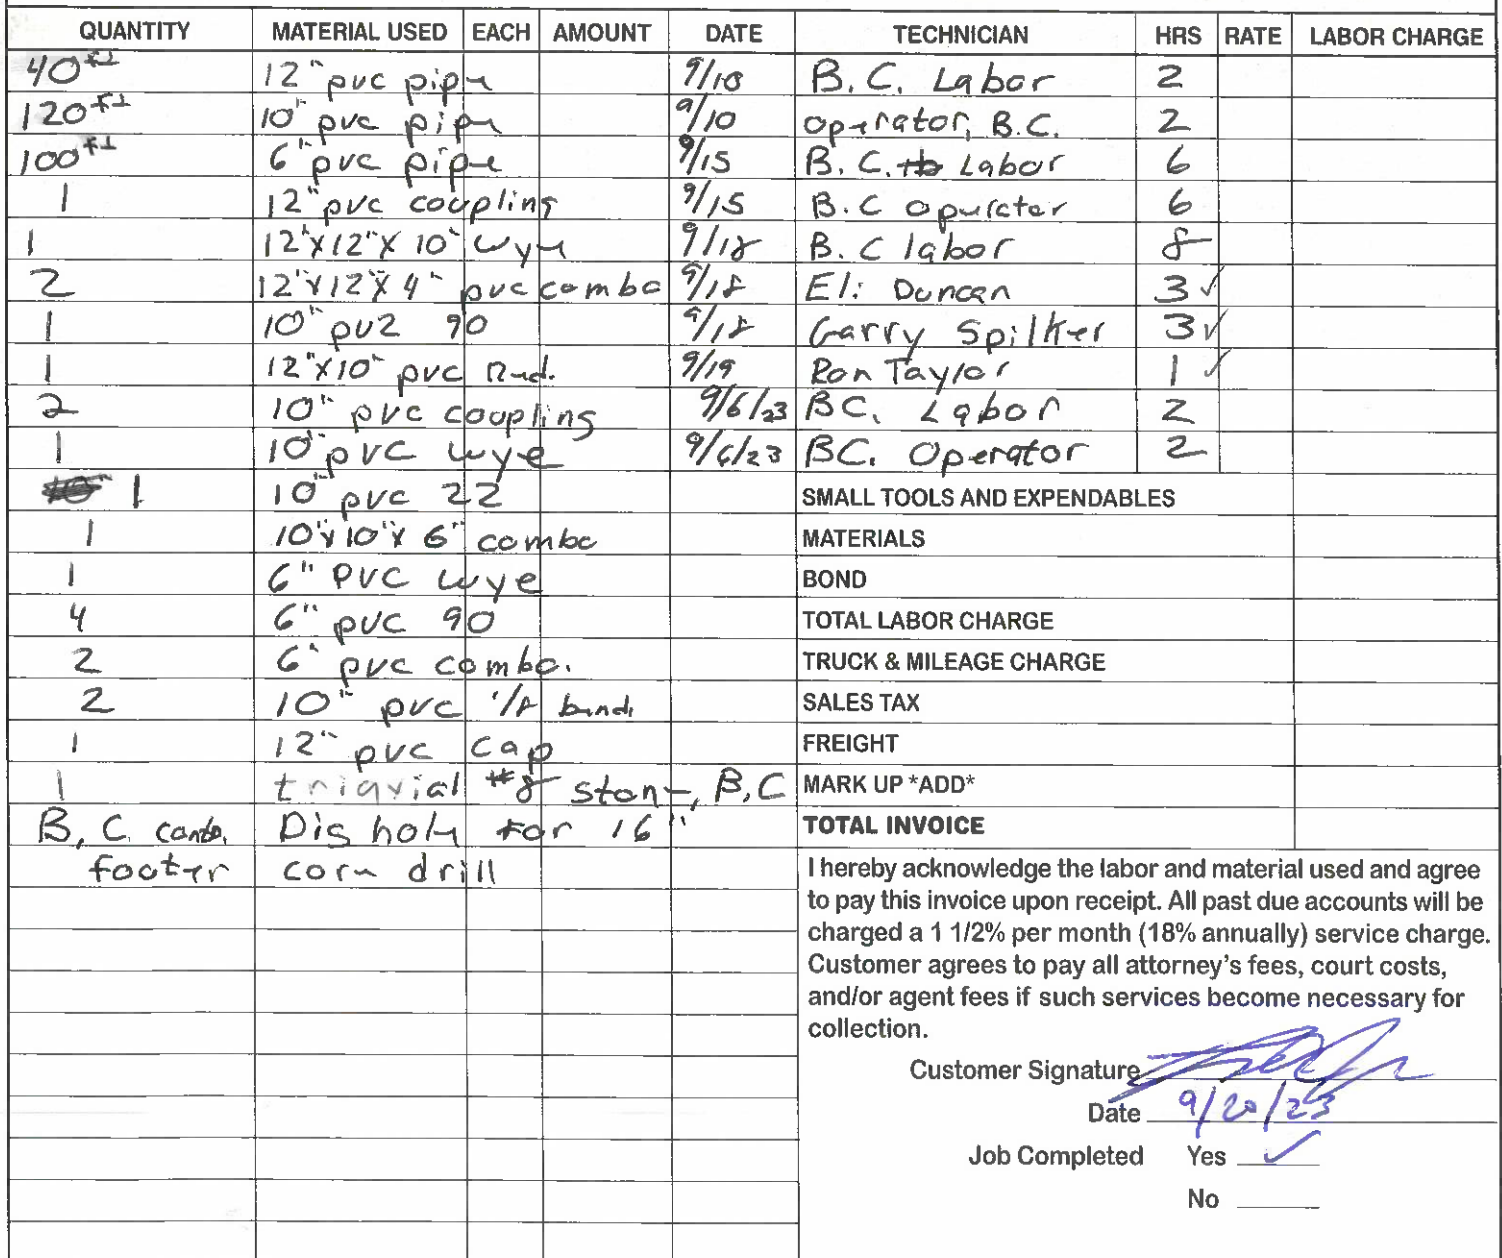 QUANTITY MATERIAL USED EACH AMOUNT DATE TECHNICIAN HRS RATE LABOR CHARGE
40 ft 12" pvc pipe 9/10 B.C. Labor 2
120 ft 10" pvc pipe 9/10 operator, B.C. 2
100 ft 6" pvc pipe 9/15 B.C. Labor 6
1 12" pvc coupling 9/15 B.C operator 6
1 12"X12"X10" wye 9/18 B.C labor 8
2 12"X12"X4" pvc combo 9/18 Eli Duncan 3 ✓
1 10" pvc 90 9/18 Garry Spilker 3 ✓
1 12"X10" pvc Red. 9/19 Ron Taylor 1 ✓
2 10" pvc coupling 9/6/23 BC. Labor 2
1 10" pvc wye 9/6/23 BC. Operator 2
1 10" pvc 22 SMALL TOOLS AND EXPENDABLES
1 10"x10"x6" combo MATERIALS
1 6" PVC wye BOND
4 6" pvc 90 TOTAL LABOR CHARGE
2 6" pvc combo. TRUCK & MILEAGE CHARGE
2 10" pvc 1/8 bend SALES TAX
1 12" pvc cap FREIGHT
1 triaxial #8 stone, B,C MARK UP *ADD*
B, C Dig hole for 16" TOTAL INVOICE
footer core drill
I hereby acknowledge the labor and material used and agree
to pay this invoice upon receipt. All past due accounts will be
charged a 1 1/2% per month (18% annually) service charge.
Customer agrees to pay all attorney's fees, court costs,
and/or agent fees if such services become necessary for
collection.
Customer Signature
Date 9/20/23
Job Completed Yes ✓
No